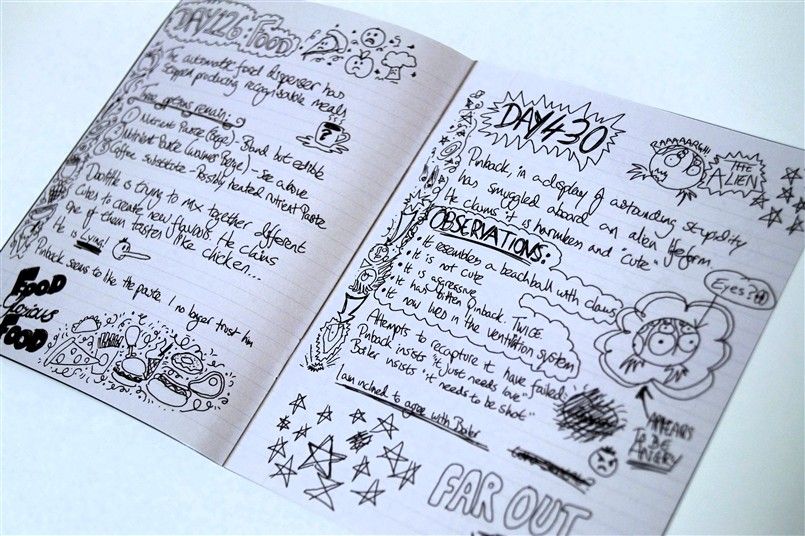 DAY 126: FOOD
The automatic food dispenser has
stopped producing recognisable meals.
Three options remain:
① Nutrient Paste (Beige) - Bland but edible
② Nutrient Paste (Warmer Beige) - See above
③ Coffee substitute - Possibly heated nutrient paste
Doolittle is trying to mix together different
cubes to create new flavours. He claims
one of them tastes like chicken...
He is lying!
Pinback seems to like the paste. I no longer trust him
FOOD
Glorious
FOOD
DAY 430
RAAAAARGH!!
THE
ALIEN
Pinback, in a display of astounding stupidity
has smuggled aboard an alien lifeform.
He claims it is harmless and "cute"
OBSERVATIONS:
• It resembles a beachball with claws
• It is not cute
• It is aggressive
• It has bitten Pinback. TWICE.
• It now lives in the ventilation system
Eyes?
Attempts to recapture it have failed.
Pinback insists "it just needs love"
Boiler insists "it needs to be shot"
I am inclined to agree with Boiler
APPEARS
TO BE
ANGRY
FAR OUT